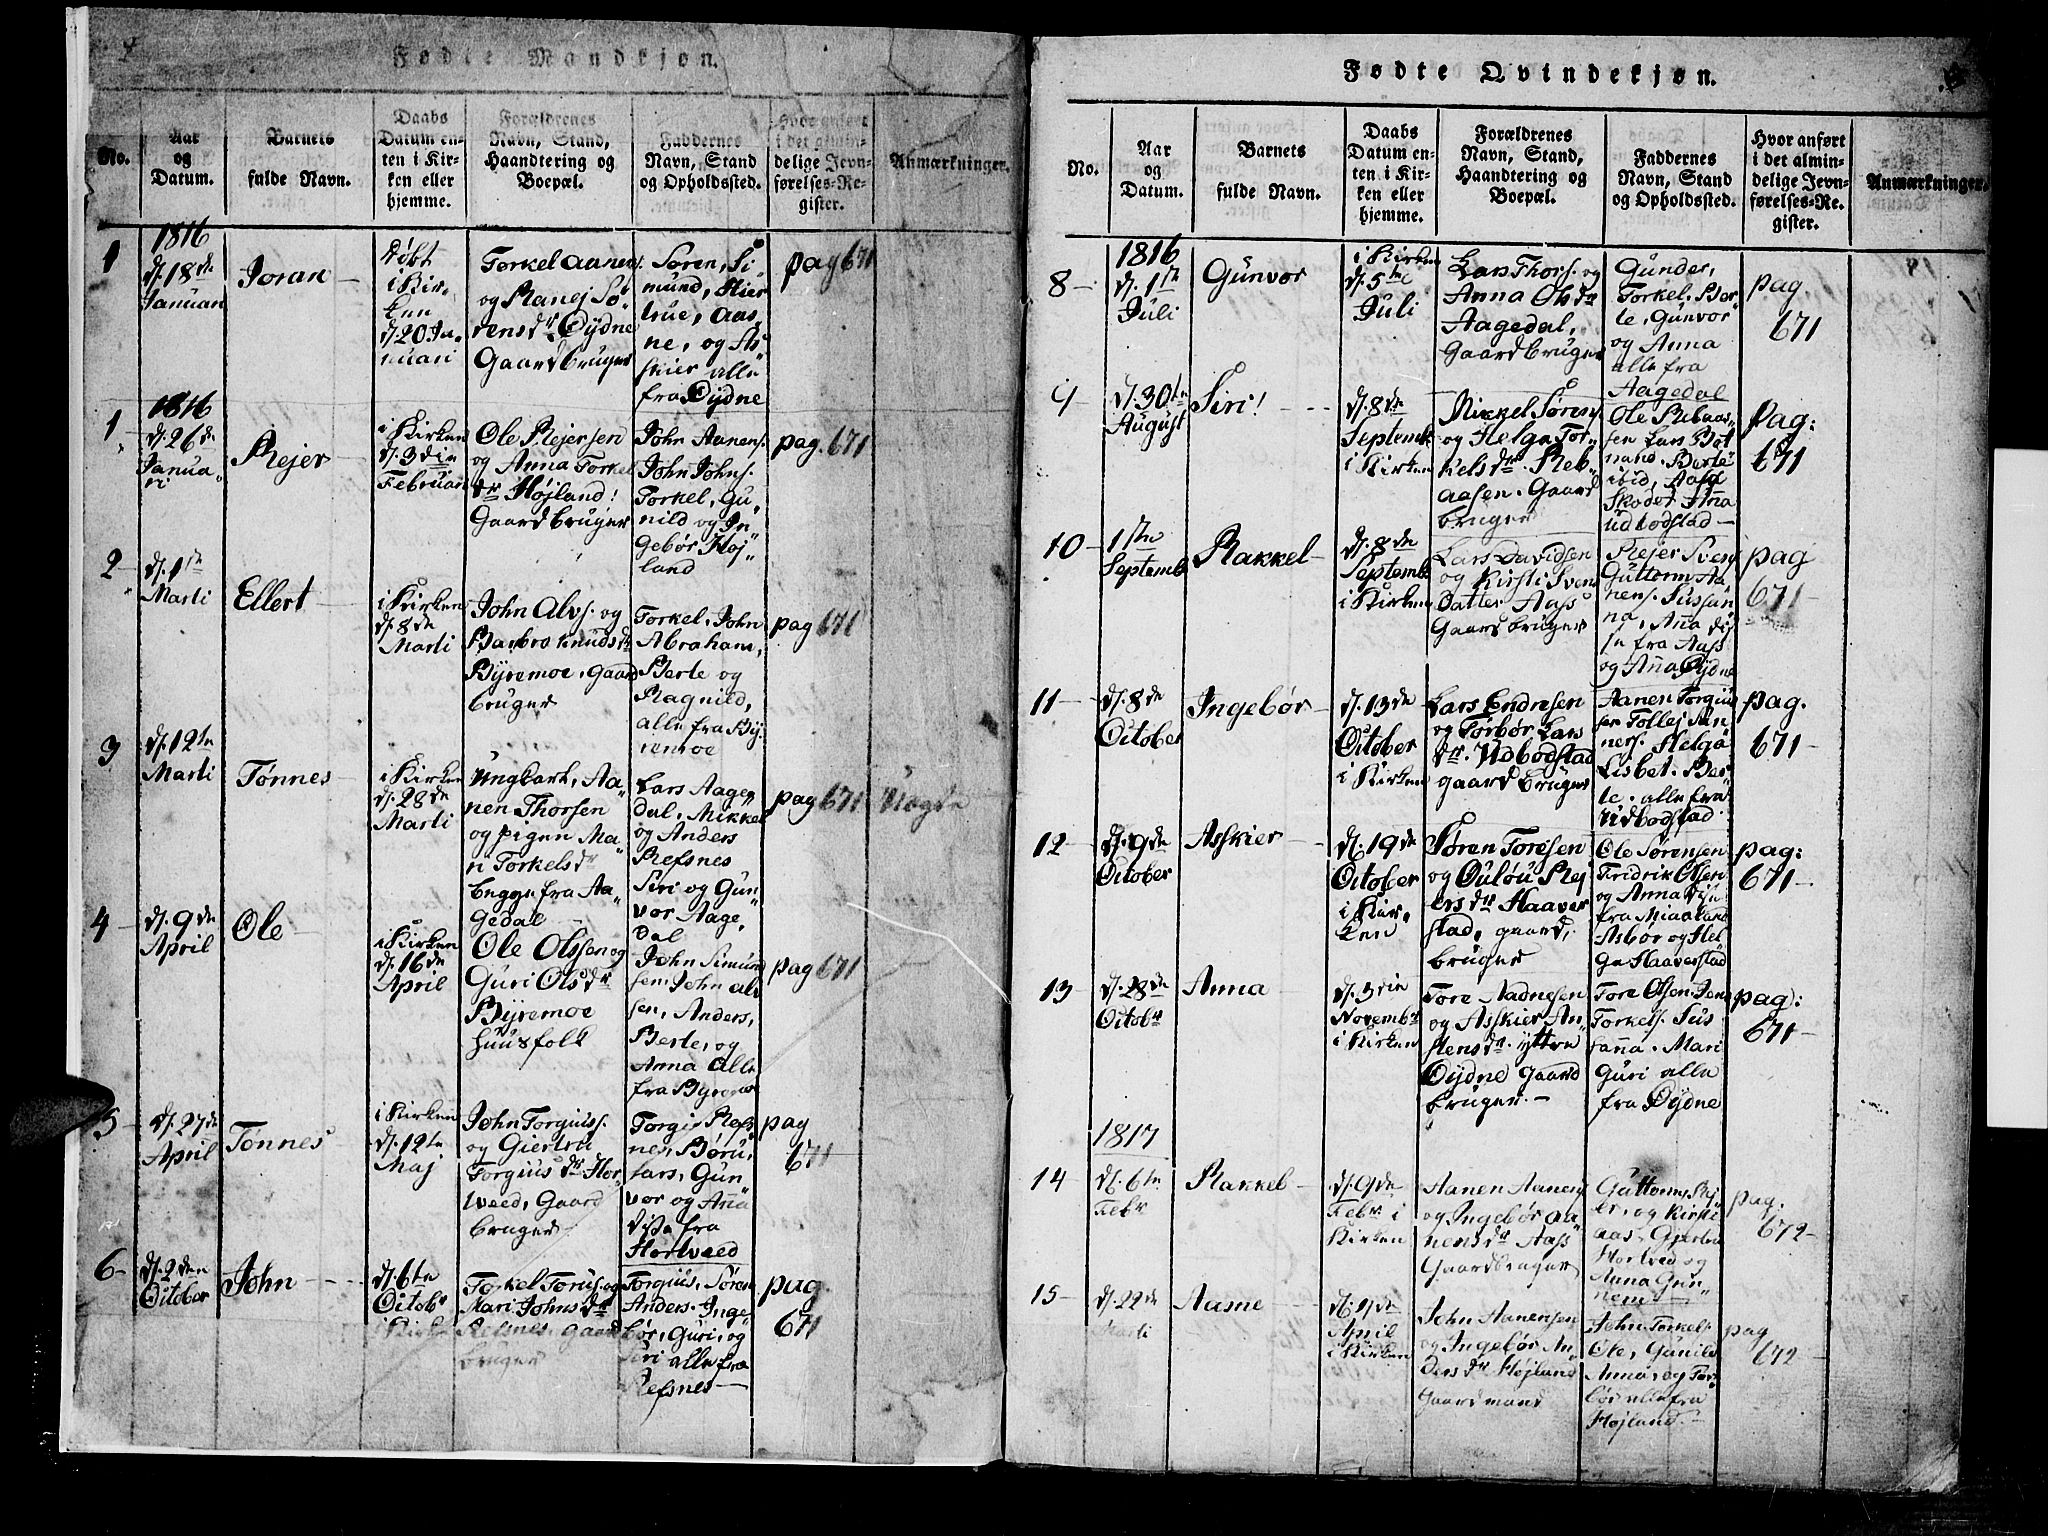 Fødte Mandkjøn.
No.
Aar
og
Datum.
Barnets
fulde Navn.
Daabs
Datum en-
ten i Kir-
ken eller
hjemme.
Forældrenes
Navn, Stand,
Haandtering og
Boepæl.
Faddernes
Navn, Stand
og Opholdssted.
Hvor anført
i det almin-
delige Jevn-
førelses-Re-
gister.
Anmærkninger.
1
1816
d. 18de
Januari
Joran
døbt
i Kir-
ken
d. 20 Ja-
nuari
Torkel Aanens.
og Ranej Sø-
rensdr Øydne
Gaardbruger
Søren, Si-
mund, Kier
True, Aas-
ne, og As-
kier alle
fra Øydne
pag 671
1
1816
d. 26de
Janua-
ri
Rejer
i Kirken
d. 3die
Februari
Ole Rejersen
og Anna Torkel
dr Højland!
Gaardbruger
John Aanens.
John Johns.
Torkel, Gu-
nild og In-
gebør Høj-
land
pag. 671
2
d. 1ste
Marti
Ellert
i Kirken
d. 8de
Marti
John Alvs. og
Barbro Knudsdr
Byremoe, Gaard
bruger
Torkel, John
Abraham,
Berte og
Ragnild,
alle fra By-
remoe
pag 671
3
d. 12te
Marti
Tønnes
i Kirken
d. 28de
Marti
Ungkarl, Aa-
nen Thorsen
og pigen Ma-
ri Torkelsdr
begge fra Aa-
gedal
Lars Aage-
dal, Mikkel
og Anders
Refsnes
Siri og Gun-
vor Aage-
dal
pag 671
Uægte
4
d. 9de
April
Ole
i Kirken
d. 16de
April
Ole Olssen og
Guri Olsdr
Byremoe
Huusfolk
John Simund
sen, John Alv
sen, Anders,
Berte, og
Anna Alle
fra Byremoe
pag 671
5
d. 27de
April
Tønnes
i Kirken
d. 12te
Maj
John Torgiuss.
og Giertru
Torgiusdr Hor-
veed, Gaard
bruger
Torgi Refs
nes, Børu,
Lars, Gun-
vor og Anna
Disa fra
Hortveed
pag
671
6
d. 2den
October
John
d. 6te
Octobr
i Kirken
Torkel Torius. og
Mari Johnsdr
Refsnes, Gaard
bruger
Torgius, Søren
Anders, Inge-
bør, Guri, og
Siri alle fra
Refsnes
pag.
671
Fødte Qvindekjøn.
No.
Aar
og
Datum.
Barnets
fulde Navn.
Daabs
Datum en-
ten i Kir-
ken eller
hjemme.
Forældrenes
Navn, Stand,
Haandtering og
Boepæl.
Faddernes
Navn, Stand
og Opholdssted.
Hvor anført
i det almin-
delige Jevn-
førelses-Re-
gister.
Anmærkninger.
8
1816
d. 1ste
Juli
Gunvor
i Kirken
d. 5te
Juli
Lars Thors. og
Anna Olsdr
Aagedal,
Gaardbruger
Gunder,
Torkel, Ber-
te, Gunvor
og Anna
alle fra
Aagedal
pag
671
9
d. 30te
August
Siri!
d. 8de
Septemb
i Kirken
Mikkel Sørens.
og Helga Tor-
kelsdr. Reb-
aasen. Gaard
bruger
Ole Rebaas-
sen Lars Bot
nand. Berte
ibid, Aasa
Skoder Anna
Udbodstad
Pag:
671
10
1ste
Septemb
Rakkel
d. 8de
Septemb
i Kirken
Lars Davidsen
og Kirsti Sven
datter Aass
Gaardbruger
Rejer Svens
Guttorm Aa-
nens. Susan-
na, Anna Di-
se fra Aass
og Anna Øydne
pag
671
11
d. 8de
October
Ingebør
d. 13de
October
i Kirken
Lars Endresen
og Torbør Lars
dr. Udbodstad
gaardbruger
Aanen Torgius
sen Tollej Gun
ners. Helga
Lisbet. Ber-
te. alle fra
Udbodstad
pag.
671
12
d. 9de
October
Asskier
d. 19de
October
i Kir-
ken
Søren Toresen
og Oulou Rej
ersdr Haaver
stad, gaard-
bruger
Ole Sørensen
Fridrik Olsen
og Anna Disa
fra Miaaland
Asbør og Hel-
ga Haaverstad
pag:
671
13
d. 28de
Octobr
Anna
d. 3die
Novembr
i Kirken
Tore Aadnesen
og Asskier An-
stensdr. ytter
Øydne gaard
bruger.
Tore Olsen. Jens
Torkels. Sus
sanna. Mari
Guri alle
fra Øydne
pag:
671
1817
14
d. 6te
Febr
Rakkel
d. 9de
Febr i
Kirken
Aanen Aanens
og Ingebør Aa-
nensdr Aass
Gaardbruger
Guttorm, Rej
er, og Kirsti
Aas. Giertru
Hortved og
Anna Gun-
nem
pag.
672
15
d. 22de
Marti
Aasne
d. 9de
April
i Kirken
John Aanensen
og Ingebør An-
dersdr Højland
Gaardmand
John Torkels.
Ole, Gunild
Anna, og Tor-
bør alle fra
Højland
pag
672